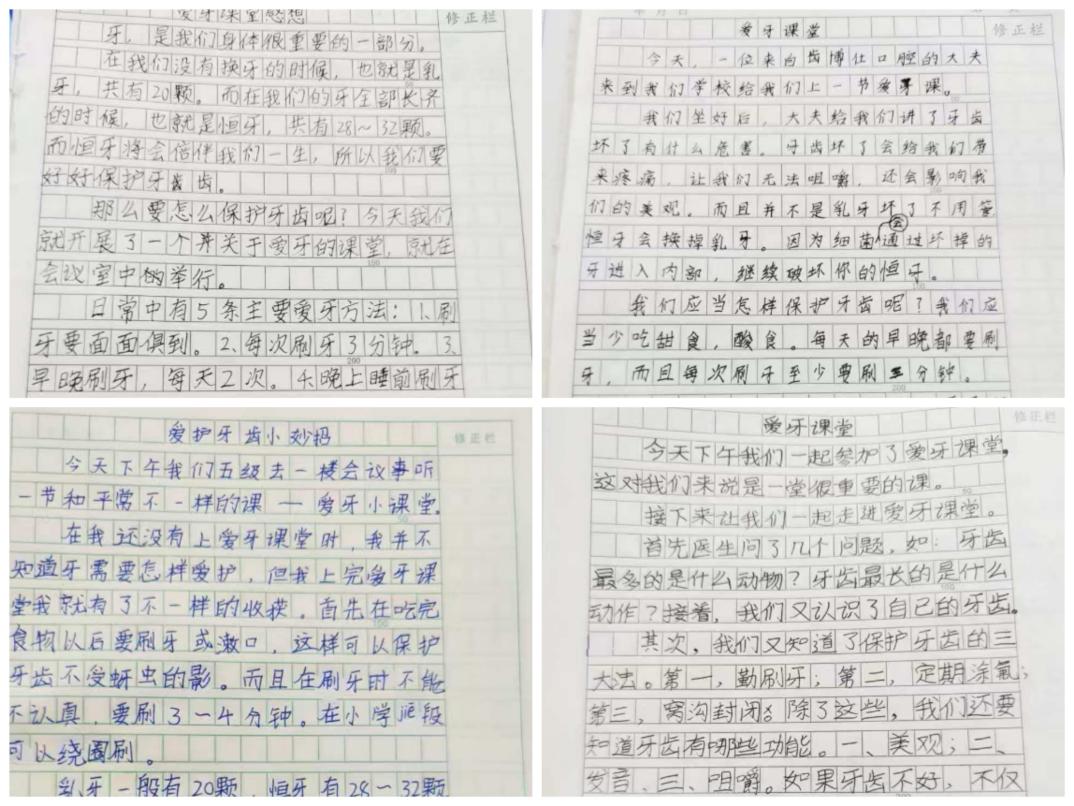 爱牙课堂感想
修正栏
牙，是我们身体很重要的一部分。
在我们没有换牙的时候，也就是乳
牙，共有20颗。而在我们的牙全部长齐
的时候，也就是恒牙，共有28～32颗。
而恒牙将会倍伴我们一生，所以我们要
好好保护牙齿。
那么要怎么保护牙齿呢？今天我们
就开展了一个关于爱牙的课堂，就在
会议室中举行。
日常中有5条主要爱牙方法：1.刷
牙要面面俱到。2.每次刷牙3分钟。3.
200
早晚刷牙，每天2次。4.晚上睡前刷牙
爱牙课堂
修正栏
今天，一位来自齿博仕口腔的大夫
来到我们学校给我们上一节爱牙课。
我们坐好后，大夫给我们讲了牙齿
坏了有什么危害。牙齿坏了会给我们带
来疼痛，让我们无法咀嚼，还会影响我
们的美观。而且并不是乳牙坏了不用管
恒牙会换掉乳牙。因为细菌会通过坏掉的
牙进入内部，继续破坏你的恒牙。
我们应当怎样保护牙齿呢？我们应
当少吃甜食，酸食。每天的早晚都要刷
牙，而且每次刷牙至少要刷三分钟。
200
爱护牙齿小妙招
修正栏
今天下午我们五级去一楼会议事听
一节和平常不一样的课——爱牙小课堂。
在我还没有上爱牙课堂时，我并不
知道牙需要怎样爱护，但我上完爱牙课
堂我就有了不一样的收获。首先在吃完
食物以后要刷牙或漱口，这样可以保护
牙齿不受蚜虫的影。而且在刷牙时不能
不认真，要刷3～4分钟。在小学阶段
可以绕圈刷。
乳牙一般有20颗，恒牙有28～32颗
爱牙课堂
修正栏
今天下午我们一起参加了爱牙课堂，
这对我们来说是一堂很重要的课。
接下来让我们一起走进爱牙课堂。
首先医生问了几个问题，如：牙齿
最多的是什么动物？牙齿最长的是什么
动作？接着，我们又认识了自己的牙齿。
其次，我们又知道了保护牙齿的三
大法。第一，勤刷牙；第二，定期涂氟；
第三，窝沟封闭。除了这些，我们还要
知道牙齿有哪些功能。一、美观；二、
发音、三、咀嚼。如果牙齿不好，不仅